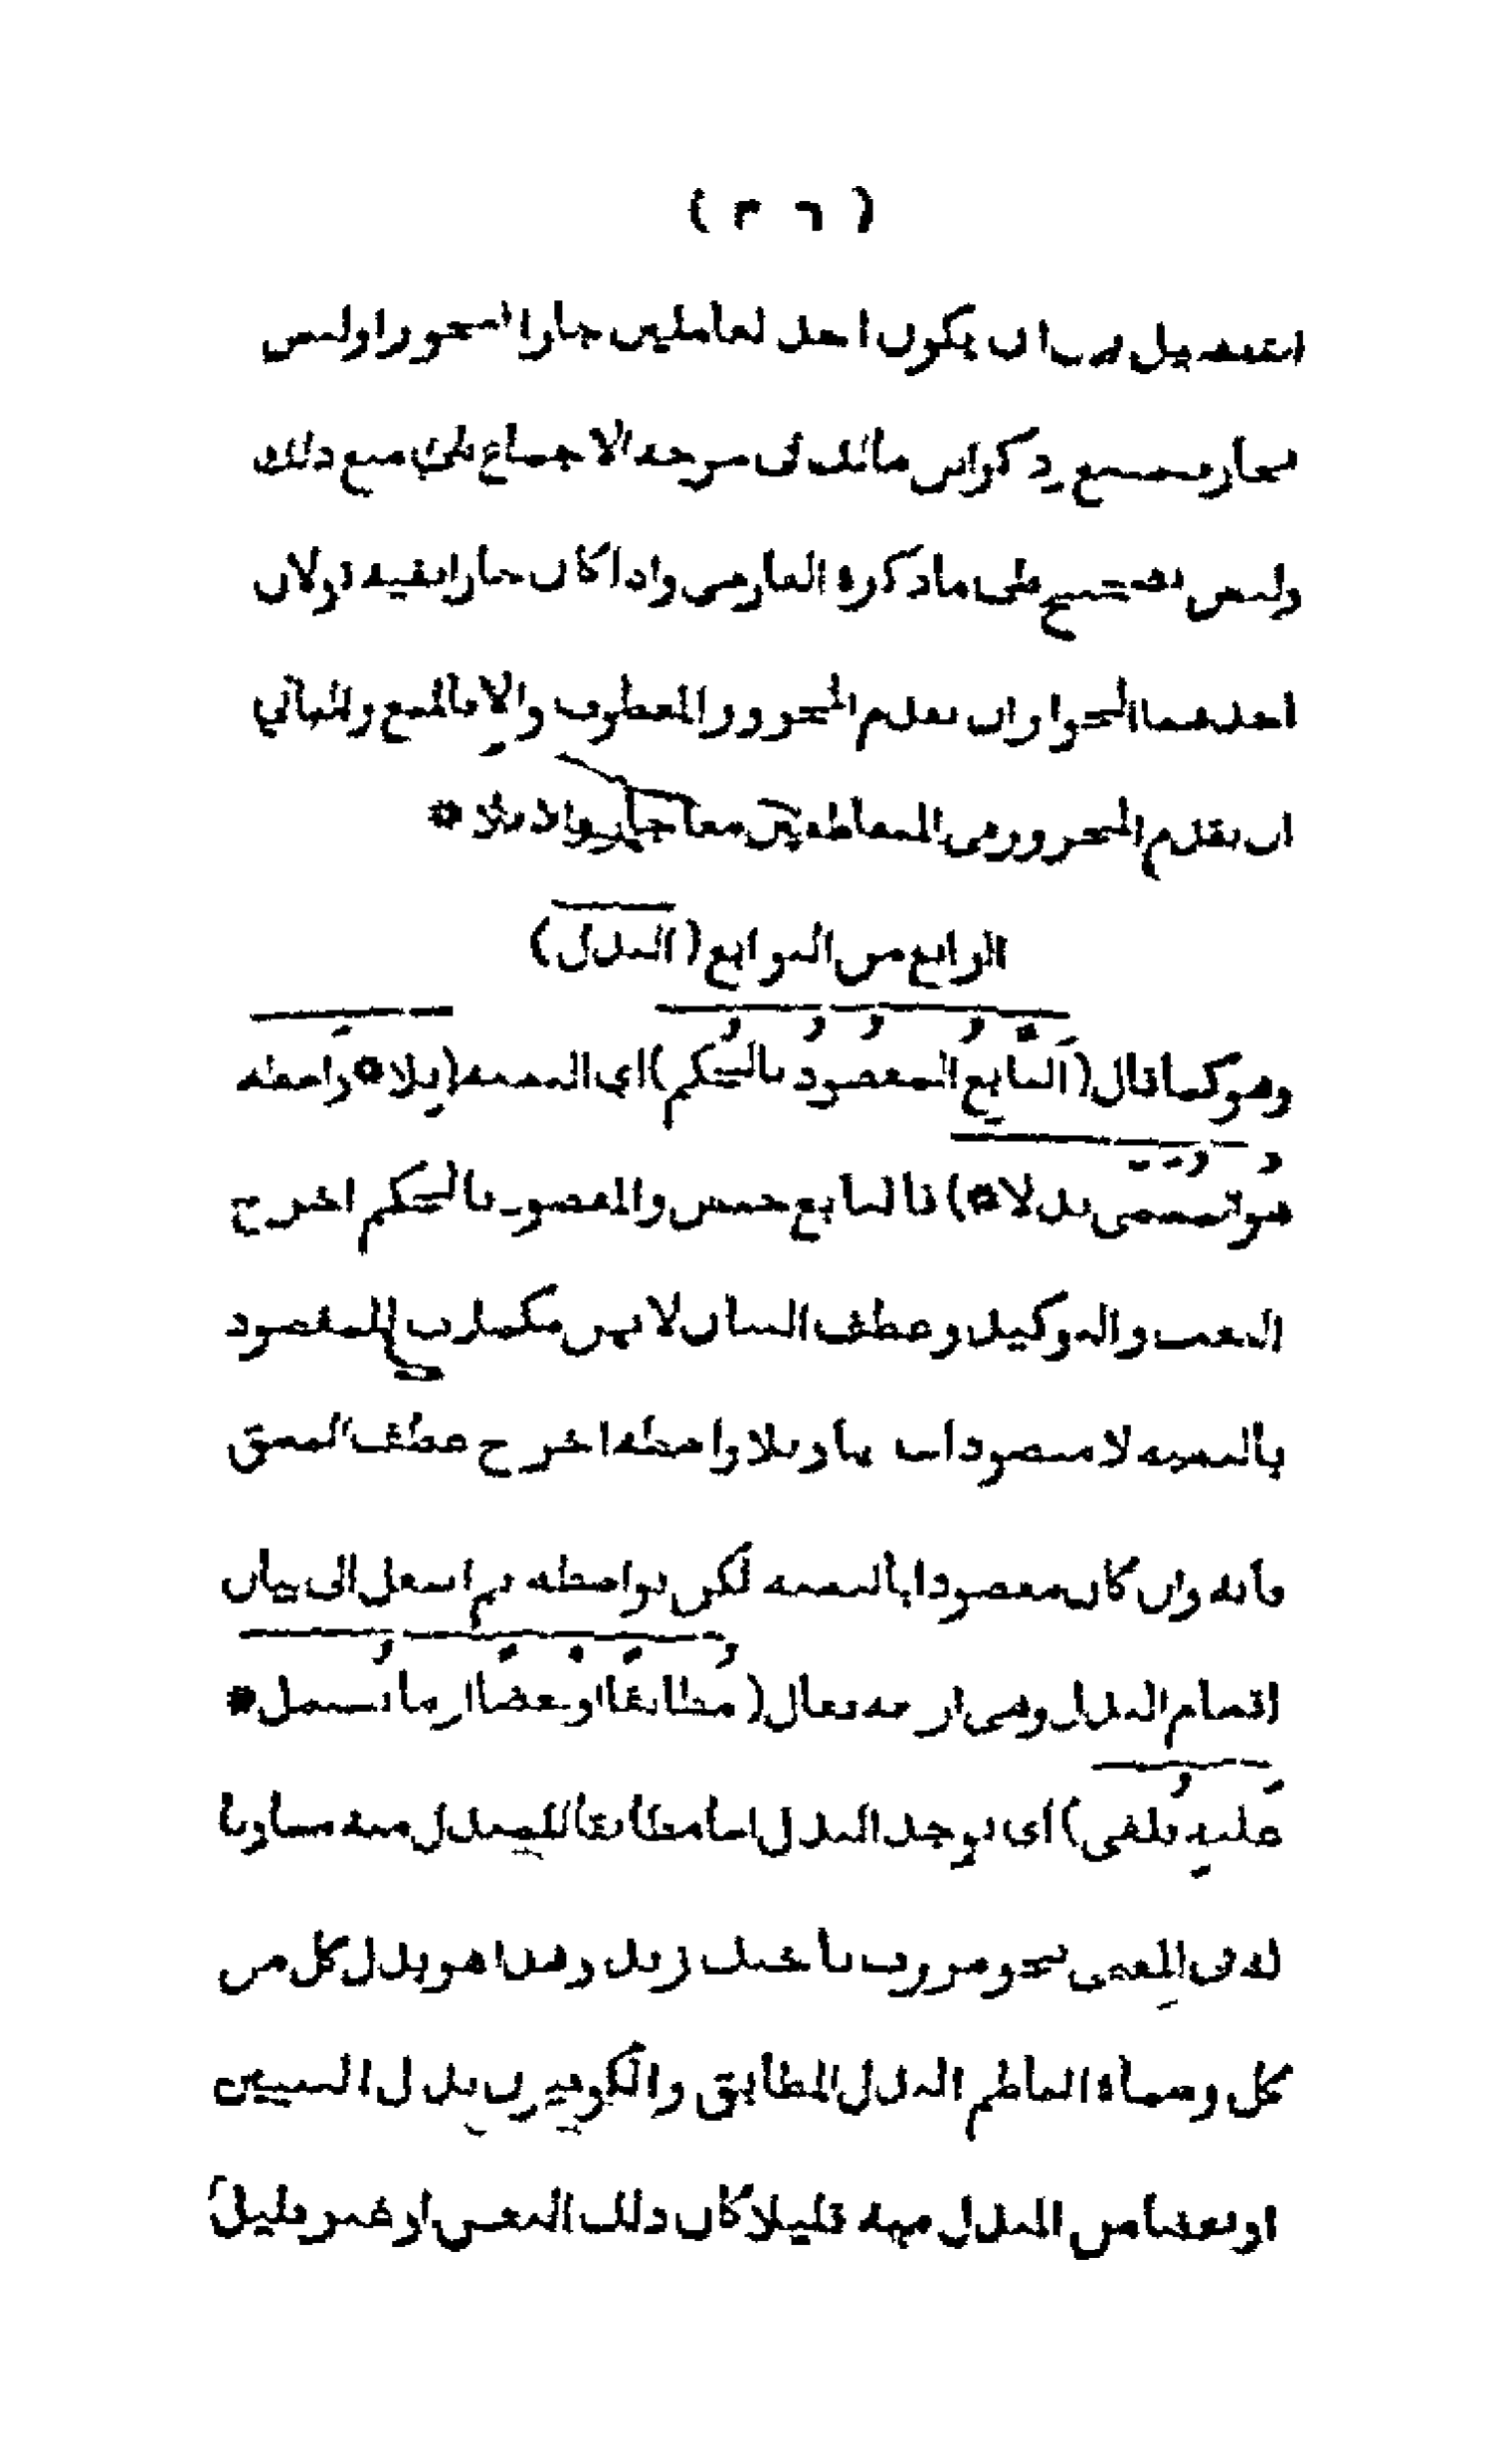 ( ٣٦ )
التفصيل فيه ان يكون احد العاملين جارا المجرور او ليس
بجار فيمتنع ذكر ابن مالك في شرحه الاجماع على منع ذلك
وليس بصحيح على ما ذكره الفارسي واذا كان جارا ففيه قولان
احدهما الجواز ان تقدم المجرور المعطوف والا فالمنع والثاني
ان تقدم المجرور في المتعاطفين معا جاز والا فلا *
الرابع من التوابع (البدل)
وهو كما قال (التابع المقصود بالحكم) اي النسبة (بلا * واسطه
هو المسمى بدلا *) فالتابع جنس والمقصود بالحكم اخرج
النعت والتوكيد وعطف البيان لانهن مكملات للمقصود
بالنسبه لا مقصودات بها وبلا واسطه اخرج عطف النسق
فانه وان كان مقصودا بالنسبه لكن بواسطه ثم انتقل الى بيان
اقسام البدل وهي اربعه فقال (مطابقا او بعضا او ما يشتمل *
عليه يلفى) اى يوجد البدل اما مطابقا للمبدل منه مساويا
له فى المعنى نحو مررت باخيك زيد وهذا هو بدل كل من
كل وسماه الناظم البدل المطابق والكوفيون بدل التبيين
او بعضا من المبدل منه قليلا كان ذلك البعض او غير قليل